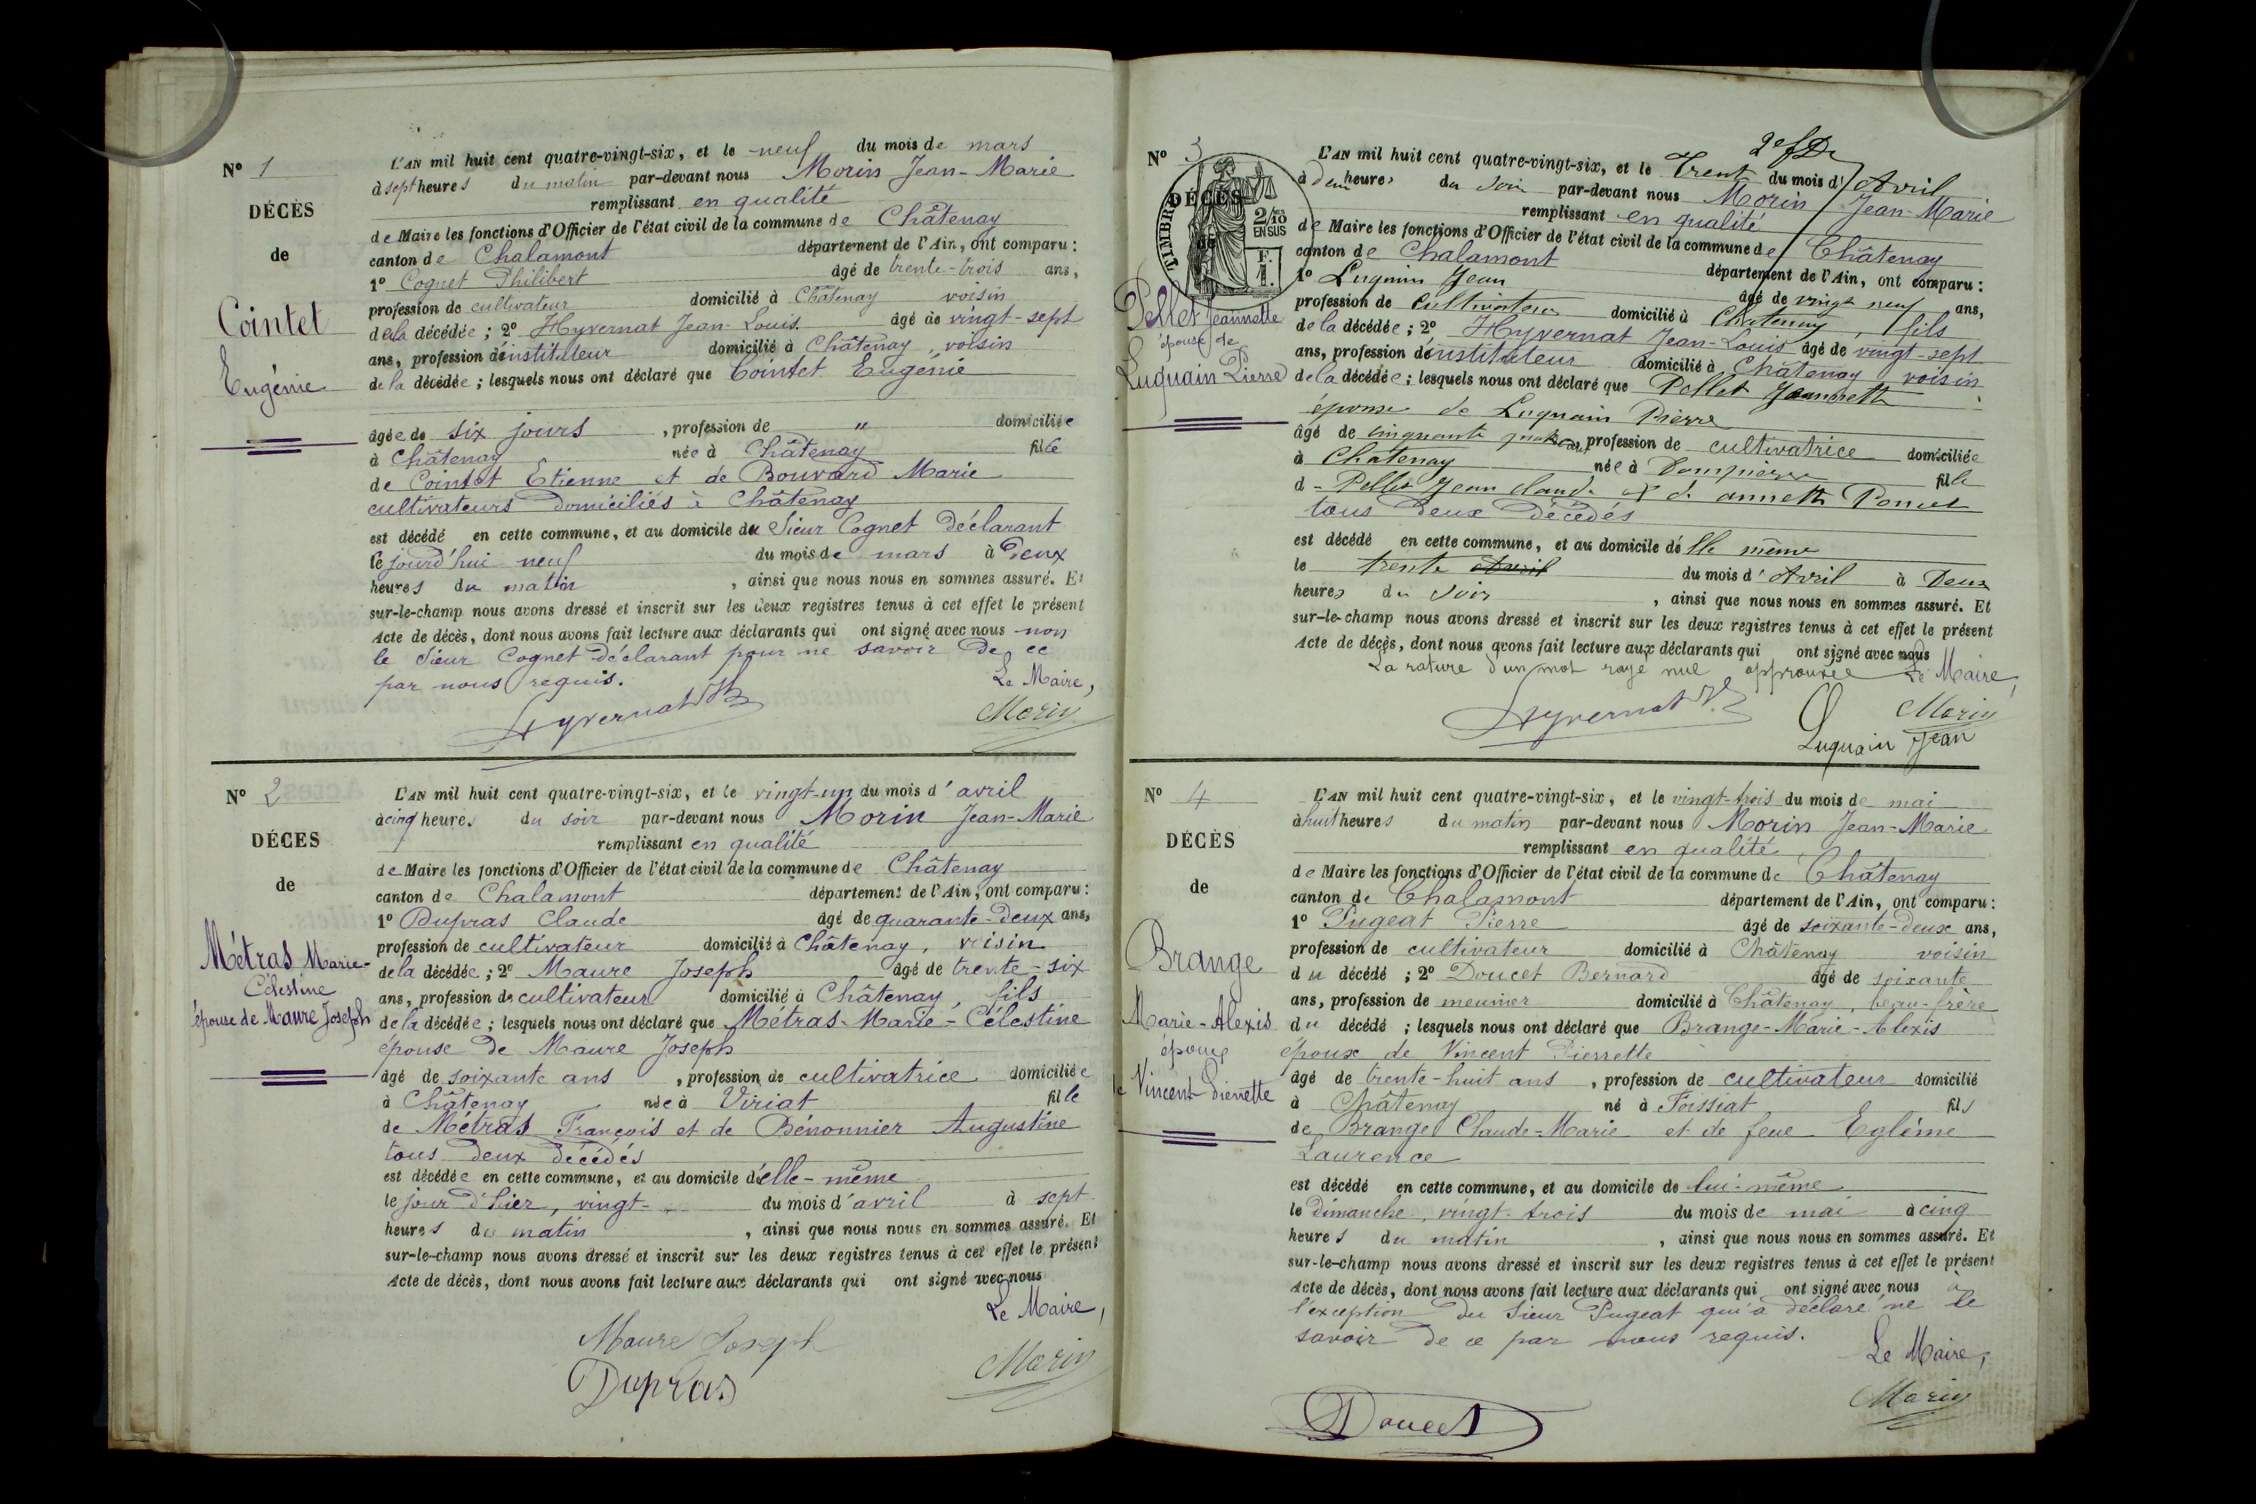 N° 1
DÉCÈS
de
Cointet
Eugénie
L'AN mil huit cent quatre-vingt-six, et le neuf du mois de mars
à sept heures du matin par-devant nous Morin Jean-Marie
remplissant en qualité
de Maire les fonctions d'Officier de l'état civil de la commune de Châtenay
canton de Chalamont département de l'Ain, ont comparu :
1° Cognet Philibert âgé de trente-trois ans,
profession de cultivateur domicilié à Châtenay voisin
de la décédée ; 2° Hyvernat Jean-Louis âgé de vingt-sept
ans, profession d'instituteur domicilié à Châtenay, voisin
de la décédée ; lesquels nous ont déclaré que Cointet Eugénie
âgée de six jours , profession de " domiciliée
à Châtenay née à Châtenay fille
de Cointet Etienne et de Bouvard Marie
cultivateurs domiciliés à Châtenay
est décédé en cette commune, et au domicile du Sieur Cognet déclarant
le jourd'hui neuf du mois de mars à deux
heures du matin , ainsi que nous nous en sommes assuré. Et
sur-le-champ nous avons dressé et inscrit sur les deux registres tenus à cet effet le présent
Acte de décès, dont nous avons fait lecture aux déclarants qui ont signé avec nous non
le Sieur Cognet déclarant pour ne savoir de ce
par nous requis. Le Maire,
Hyvernat Morin
N° 2
DÉCES
de
Métras Marie-
Célestine
épouse de Maure Joseph
L'AN mil huit cent quatre-vingt-six, et le vingt-un du mois d'avril
à cinq heures du soir par-devant nous Morin Jean-Marie
remplissant en qualité
de Maire les fonctions d'Officier de l'état civil de la commune de Châtenay
canton de Chalamont département de l'Ain, ont comparu :
1° Dupras Claude âgé de quarante-deux ans,
profession de cultivateur domicilié à Châtenay, voisin
de la décédée ; 2° Maure Joseph âgé de trente-six
ans, profession de cultivateur domicilié à Châtenay, fils
de la décédée ; lesquels nous ont déclaré que Métras-Marie-Célestine
épouse de Maure Joseph
âgé de soixante ans , profession de cultivatrice domiciliée
à Châtenay née à Viriat fille
de Métras François et de Bénonnier Augustine
tous deux décédés
est décédée en cette commune, et au domicile d'elle-même
le jour d'hier, vingt- du mois d'avril à sept
heures du matin , ainsi que nous nous en sommes assuré. Et
sur-le-champ nous avons dressé et inscrit sur les deux registres tenus à cet effet le présent
Acte de décès, dont nous avons fait lecture aux déclarants qui ont signé avec nous
Le Maire,
Maure Joseph Morin
Dupras
N° 3
DÉCÈS
de
TIMBRE
2/10 EN SUS
F. 1.
Pellet Jeannette
épouse de
Luquain Pierre
L'AN mil huit cent quatre-vingt-six, et le Trente du mois d'Avril
à Deux heures du soir par-devant nous Morin Jean-Marie
remplissant en qualité
de Maire les fonctions d'Officier de l'état civil de la commune de Châtenay
canton de Chalamont département de l'Ain, ont comparu :
1° Luquain Jean âgé de vingt neuf ans,
profession de Cultivateur domicilié à Chatenay, fils
de la décédée ; 2° Hyvernat Jean-Louis âgé de vingt-sept
ans, profession d'instituteur domicilié à Châtenay voisin
de la décédée ; lesquels nous ont déclaré que Pellet Jeannette
épouse de Luquain Pierre
âgé de cinquante quatre ans, profession de cultivatrice domiciliée
à Chatenay née à Dompierre fille
d - Pellet Jean Claude et de annette Poncet
tous deux décédés
est décédé en cette commune, et au domicile d'elle même
le trente Avril du mois d'Avril à Deux
heures du soir , ainsi que nous nous en sommes assuré. Et
sur-le-champ nous avons dressé et inscrit sur les deux registres tenus à cet effet le présent
Acte de décès, dont nous avons fait lecture aux déclarants qui ont signé avec nous
La rature d'un mot rayé nul approuvée Le Maire,
Hyvernat Morin
Luquain Jean
N° 4
DÉCÈS
de
Brange
Marie-Alexis
époux
de Vincent Pierrette
L'AN mil huit cent quatre-vingt-six, et le vingt-trois du mois de mai
à huit heures du matin par-devant nous Morin Jean-Marie
remplissant en qualité
de Maire les fonctions d'Officier de l'état civil de la commune de Châtenay
canton de Chalamont département de l'Ain, ont comparu :
1° Pugeat Pierre âgé de soixante-deux ans,
profession de cultivateur domicilié à Châtenay voisin
du décédé ; 2° Doucet Bernard âgé de soixante
ans, profession de meunier domicilié à Châtenay, beau-frère
du décédé ; lesquels nous ont déclaré que Brange-Marie-Alexis
époux de Vincent Pierrette
âgé de trente-huit ans , profession de cultivateur domicilié
à Châtenay né à Foissiat fils
de Brange Claude-Marie et de feue Eglème
Laurence
est décédé en cette commune, et au domicile de lui-même
le dimanche, vingt-trois du mois de mai à cinq
heures du matin , ainsi que nous nous en sommes assuré. Et
sur-le-champ nous avons dressé et inscrit sur les deux registres tenus à cet effet le présent
Acte de décès, dont nous avons fait lecture aux déclarants qui ont signé avec nous à
l'exception du Sieur Pugeat qui a déclaré ne le
savoir de ce par nous requis.
Le Maire,
Morin
Doucet